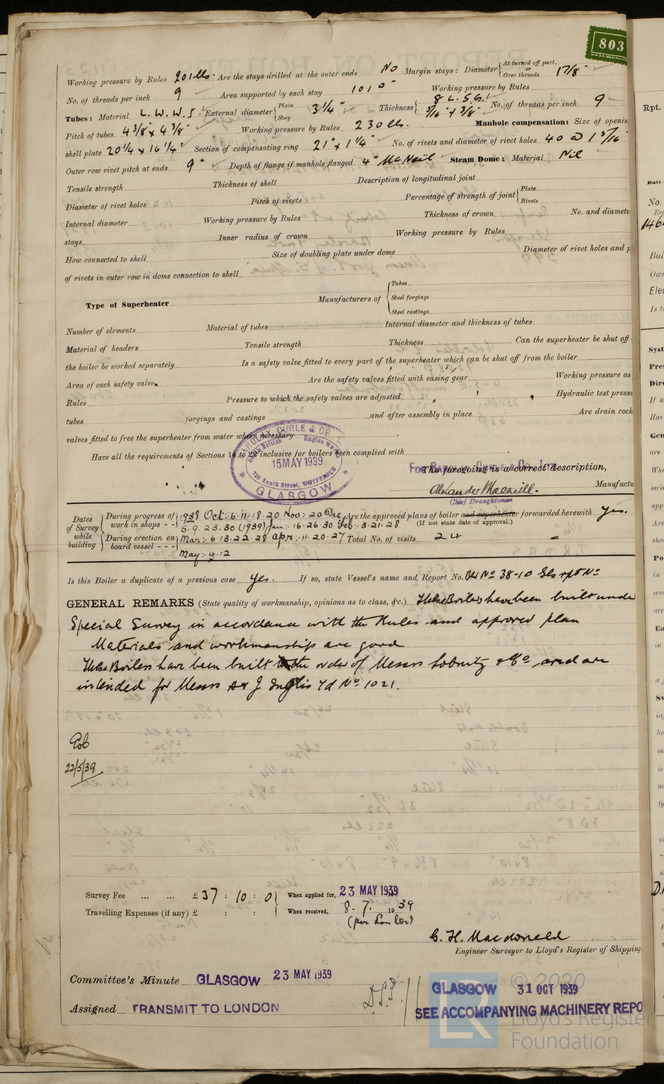 803
Working pressure by Rules 201 lbs. Are the stays drilled at the outer ends No Margin stays: Diameter { At turned off part, or Over threads. 1 7/8"
No. of threads per inch 9 Area supported by each stay 101 □" Working pressure by Rules
Tubes: Material L.W.W.I. External diameter { Plain Stay 3 1/4" Thickness { 8 L.S.G. 5/16" & 3/8" No. of threads per inch 9
Pitch of tubes 4 3/8" x 4 3/8" Working pressure by Rules 230 lbs. Manhole compensation: Size of openin
shell plate 20 1/4 x 16 1/4" Section of compensating ring 21" x 1 1/4" No. of rivets and diameter of rivet holes 40 @ 1 5/16"
Outer row rivet pitch at ends 9" Depth of flange if manhole flanged 4" McNeil Steam Dome: Material Nil
Tensile strength Thickness of shell Description of longitudinal joint
Diameter of rivet holes Pitch of rivets Percentage of strength of joint { Plate Rivets
Internal diameter Working pressure by Rules Thickness of crown No. and diamete
stays Inner radius of crown Working pressure by Rules
How connected to shell Size of doubling plate under dome Diameter of rivet holes and p
of rivets in outer row in dome connection to shell
Type of Superheater Manufacturers of { Tubes Steel forgings Steel castings
Number of elements Material of tubes Internal diameter and thickness of tubes
Material of headers Tensile strength Thickness Can the superheater be shut off
the boiler be worked separately Is a safety valve fitted to every part of the superheater which can be shut off from the boiler
Area of each safety valve Are the safety valves fitted with easing gear Working pressure as
Rules Pressure to which the safety valves are adjusted Hydraulic test press
tubes forgings and castings and after assembly in place Are drain cock
valves fitted to free the superheater from water where necessary
Have all the requirements of Sections 14 to 22 inclusive for boilers been complied with
CURLE & Co
15 MAY 1939
South Street, WHITEINCH
GLASGOW
The foregoing is a correct description,
Alexander Macneill. Manufact
Chief Draughtsman
Dates of Survey while building { During progress of work in shops - - 1938 Oct: 6.11.18.20 Nov: 20 Dec
5.9.23.30 (1939) Jan: 16.26.30 Feb: 3.21.28
During erection on board vessel - - - Mar: 6.13.22.28 Apr: 11.20.27
May: 4.12
Are the approved plans of boiler and superheater forwarded herewith Yes.
(If not state date of approval.)
Total No. of visits 24
Is this Boiler a duplicate of a previous case Yes. If so, state Vessel's name and Report No. BH No 38-10 Gls rpt No
GENERAL REMARKS (State quality of workmanship, opinions as to class, &c.) These Boilers have been built unde
Special Survey in accordance with the Rules and approved plan
Materials and workmanship are good
These Boilers have been built to the order of Messrs Lobnitz & Co and are
intended for Messrs A & J Inglis Yd No 1021.
22/5/39
Survey Fee ... ... £37 : 10 : 0 When applied for, 23 MAY 1939
Travelling Expenses (if any) £ : : When received, 8.7.1939
(per London)
G. H. Macdonald
Engineer Surveyor to Lloyd's Register of Shipping
Committee's Minute GLASGOW 23 MAY 1939
Assigned TRANSMIT TO LONDON
GLASGOW 31 OCT 1939
SEE ACCOMPANYING MACHINERY REPO
© 2020
LR
Lloyd's Register
Foundation
Rpt.